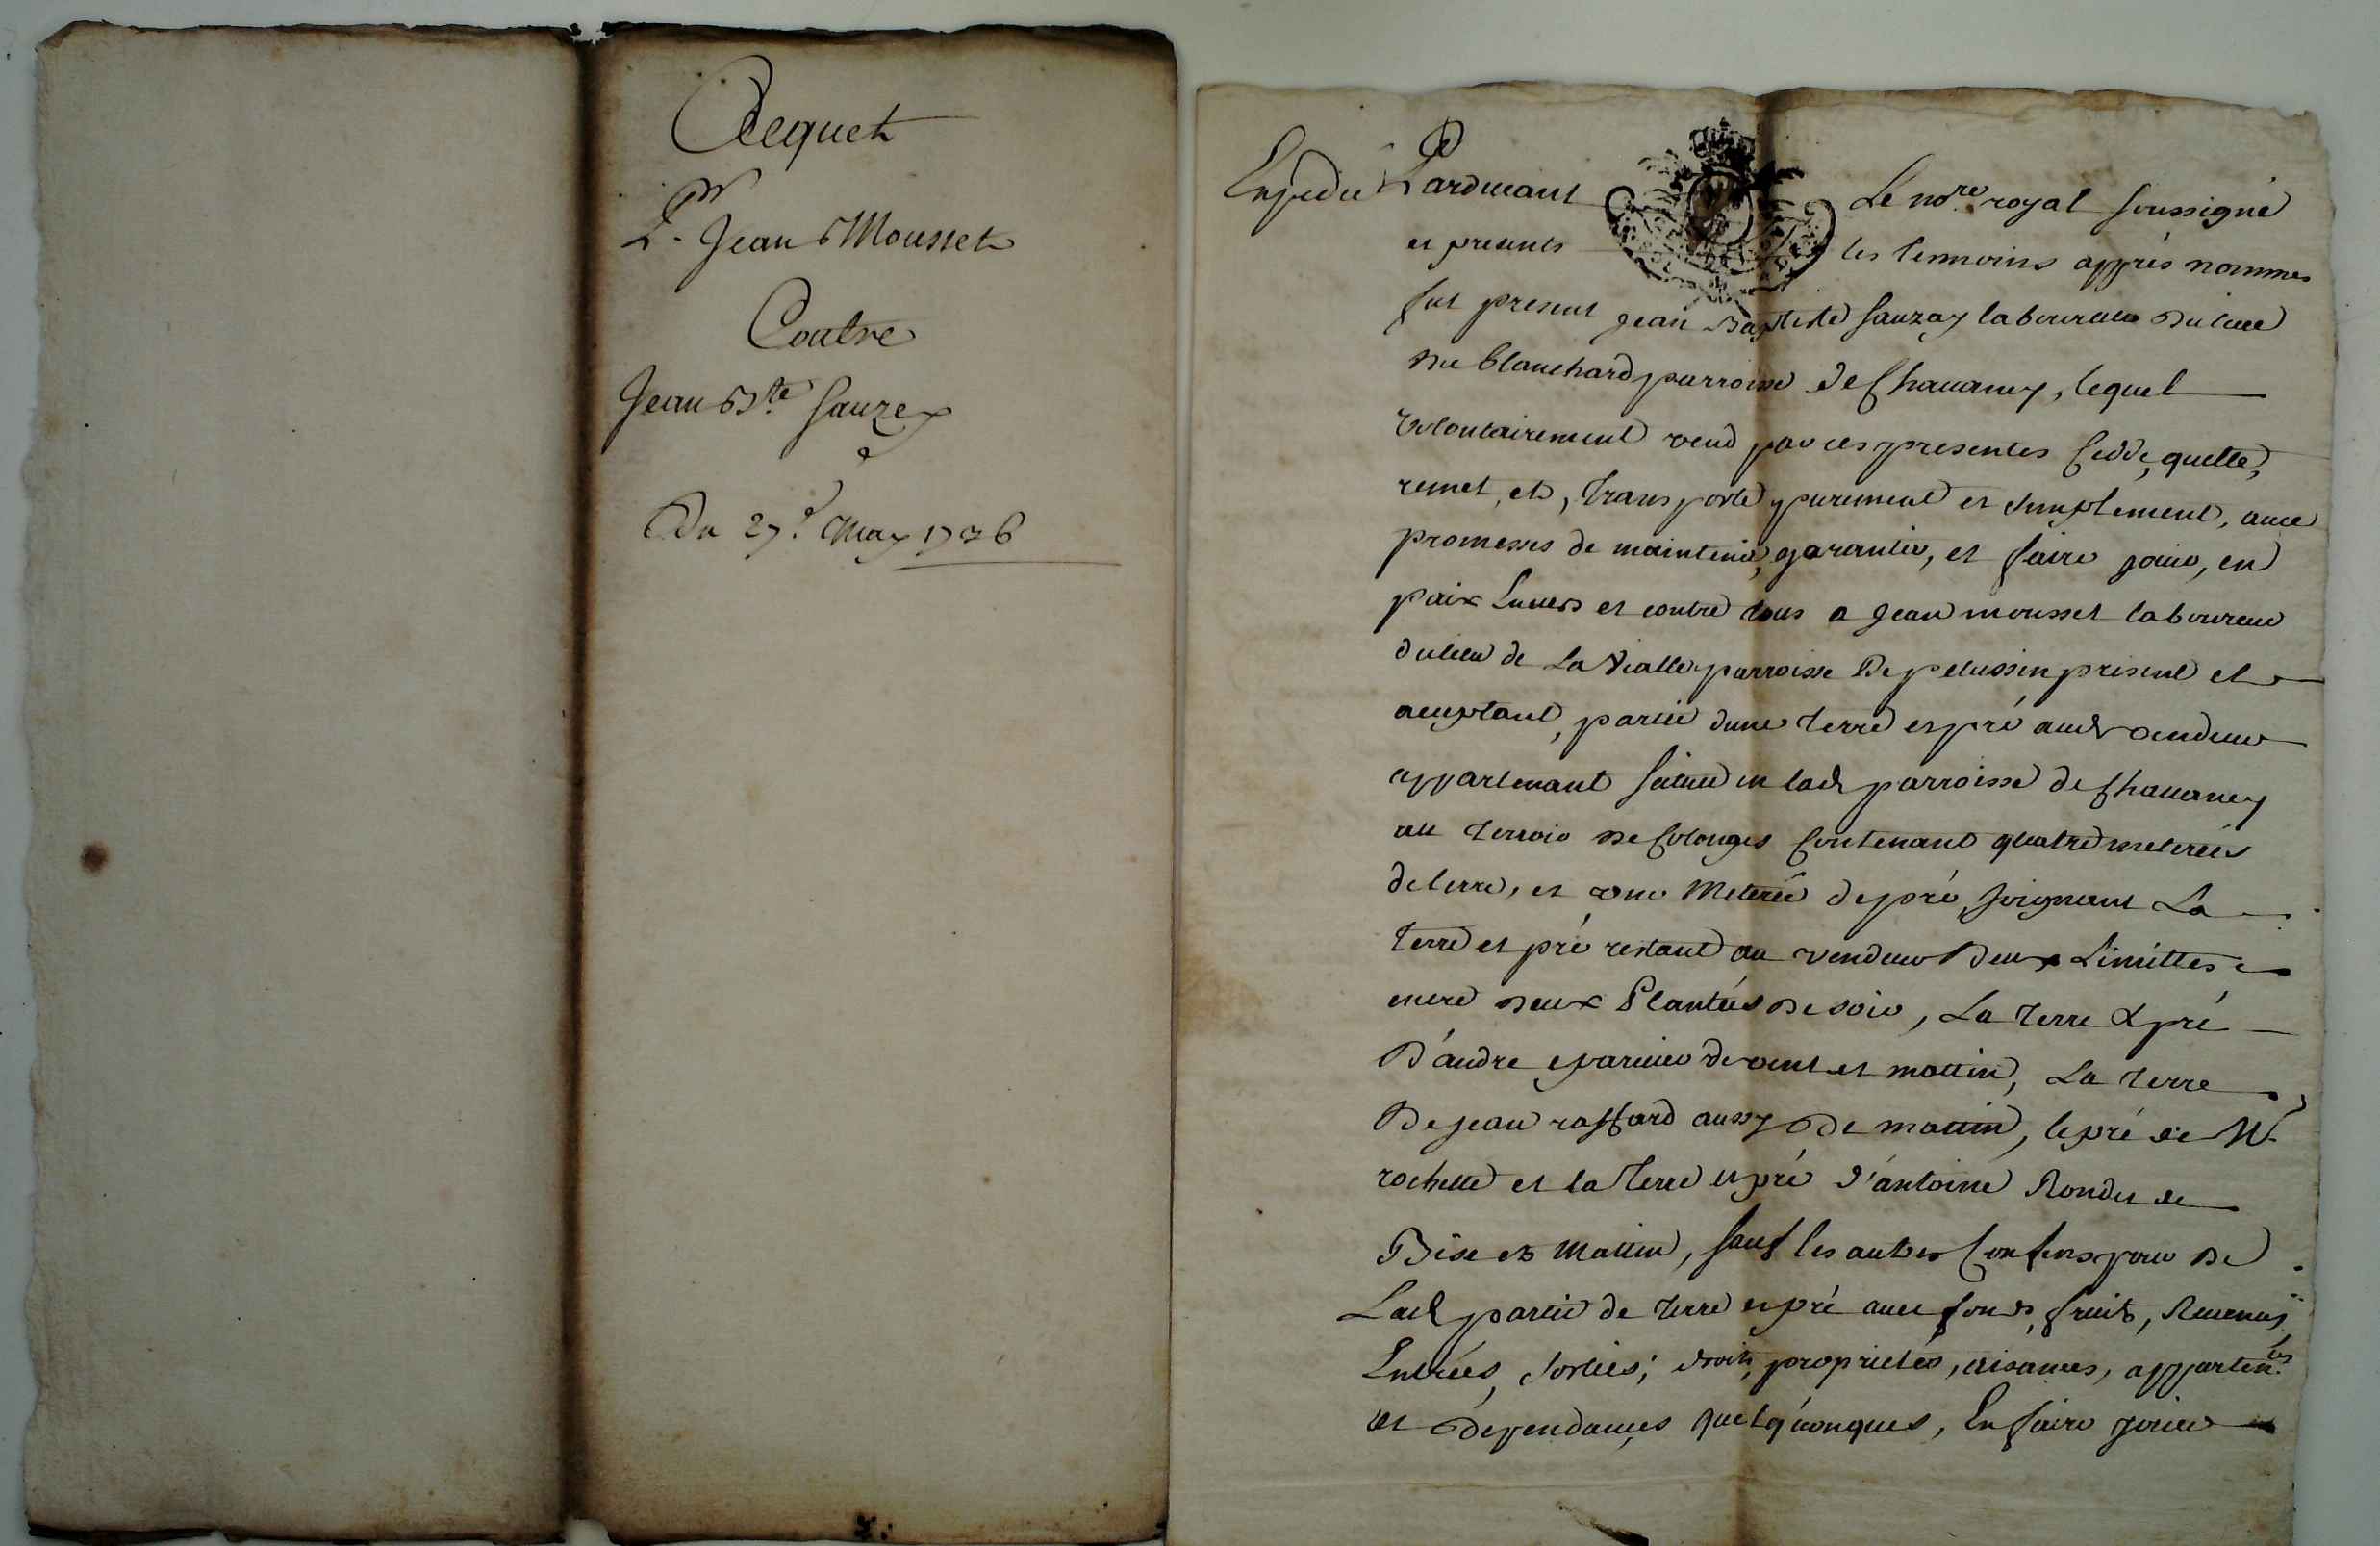 Acquet
Pr Jean Mousset
Contre
Jean Bte Sauzey
Du 27e May 1726
Expedié Pardevant Le nore royal soussigné
et presents les temmoins apprés nommes
fut present Jean Baptiste Sauzay laboureur du lieu
de blanchard parroisse de Chavaney, lequel
volontairement vend par ces presentes Cedde, quitte,
remet, et, transporte purement et simplement, avec
promesses de maintenir, garantir, et faire jouir, en
paix Envers et contre tous a Jean mousset laboureur
du lieu de La Vialle parroisse De pelussin present et
acceptant, partie dune terre et pré aud vendeur
appartenant scituée en lad parroisse de Chavaney
au terroir de Colonges Contenant quatre meterées
de terre, et une Meterée de pré, Joignant La
terre et pré restant au vendeur Deux Limittes
entre deux Plantées De soir, La terre & pré
D'andre de vent et mattin, La terre
De Jean raffard aussy de mattin, le pré de Mr
rochette et la terre et pré d'antoine Rondet de
Bise et Mattin, sauf les autres Confins pour De
Lad partie de terre et pré avec fonds, fruits, Revenus,
Entrées, sorties, droits, proprietés, aisances, appartences
et dependances quelq'uonques, En faire jouir